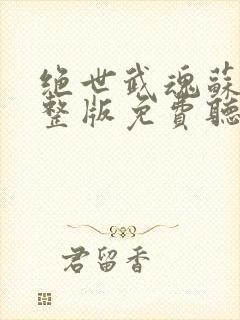 绝世武魂蘇
整版免費聽
君留香